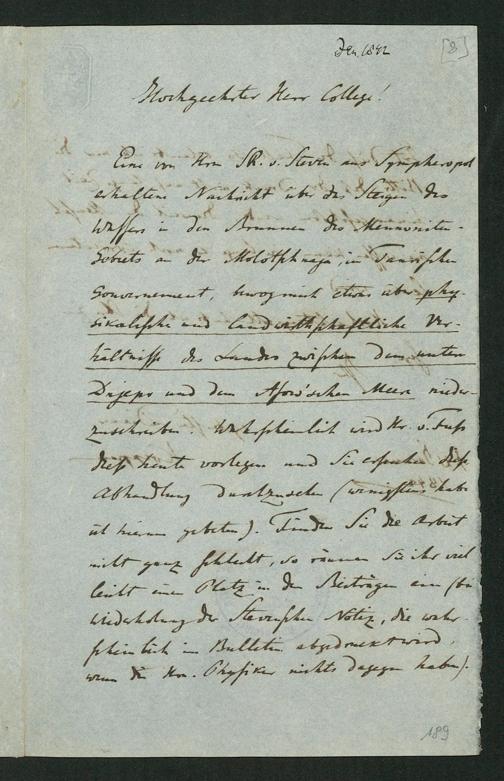 Dec. 1842
[8]
Hochgeehrter Herr College!
Eine von Hrn SR. v. Steven aus Sympheropol
erhaltene Nachricht über das Steigen des
Wassers in den Brunnen des Mennoniten-
Gebiets an der Molotschnaja, im Taurischen
Gouvernement, bewog mich etwas über phy-
sikalische und landwirthschaftliche Ver-
hältnisse des Landes zwischen dem untern
Dnjepr und dem Asow'schen Meere nieder-
zuschreiben. Wahrscheinlich wird Hr. v. Fuss
dieß heute vorlegen und Sie ersuchen diese
Abhandlung durchzusehen (wenigstens habe
ich darum gebeten). Finden Sie die Arbeit
nicht ganz schlecht, so räumen Sie ihr viel
leicht einen Platz in den Beiträgen ein (bei
Wiederholung der Stevenschen Notiz, die wahr-
scheinlich im Bulletin abgedruckt wird,
wenn die Hrn. Physiker nichts dagegen haben).
189